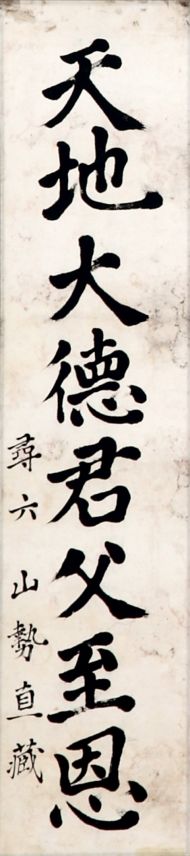 天地大德君父至恩
尋六山勢直藏